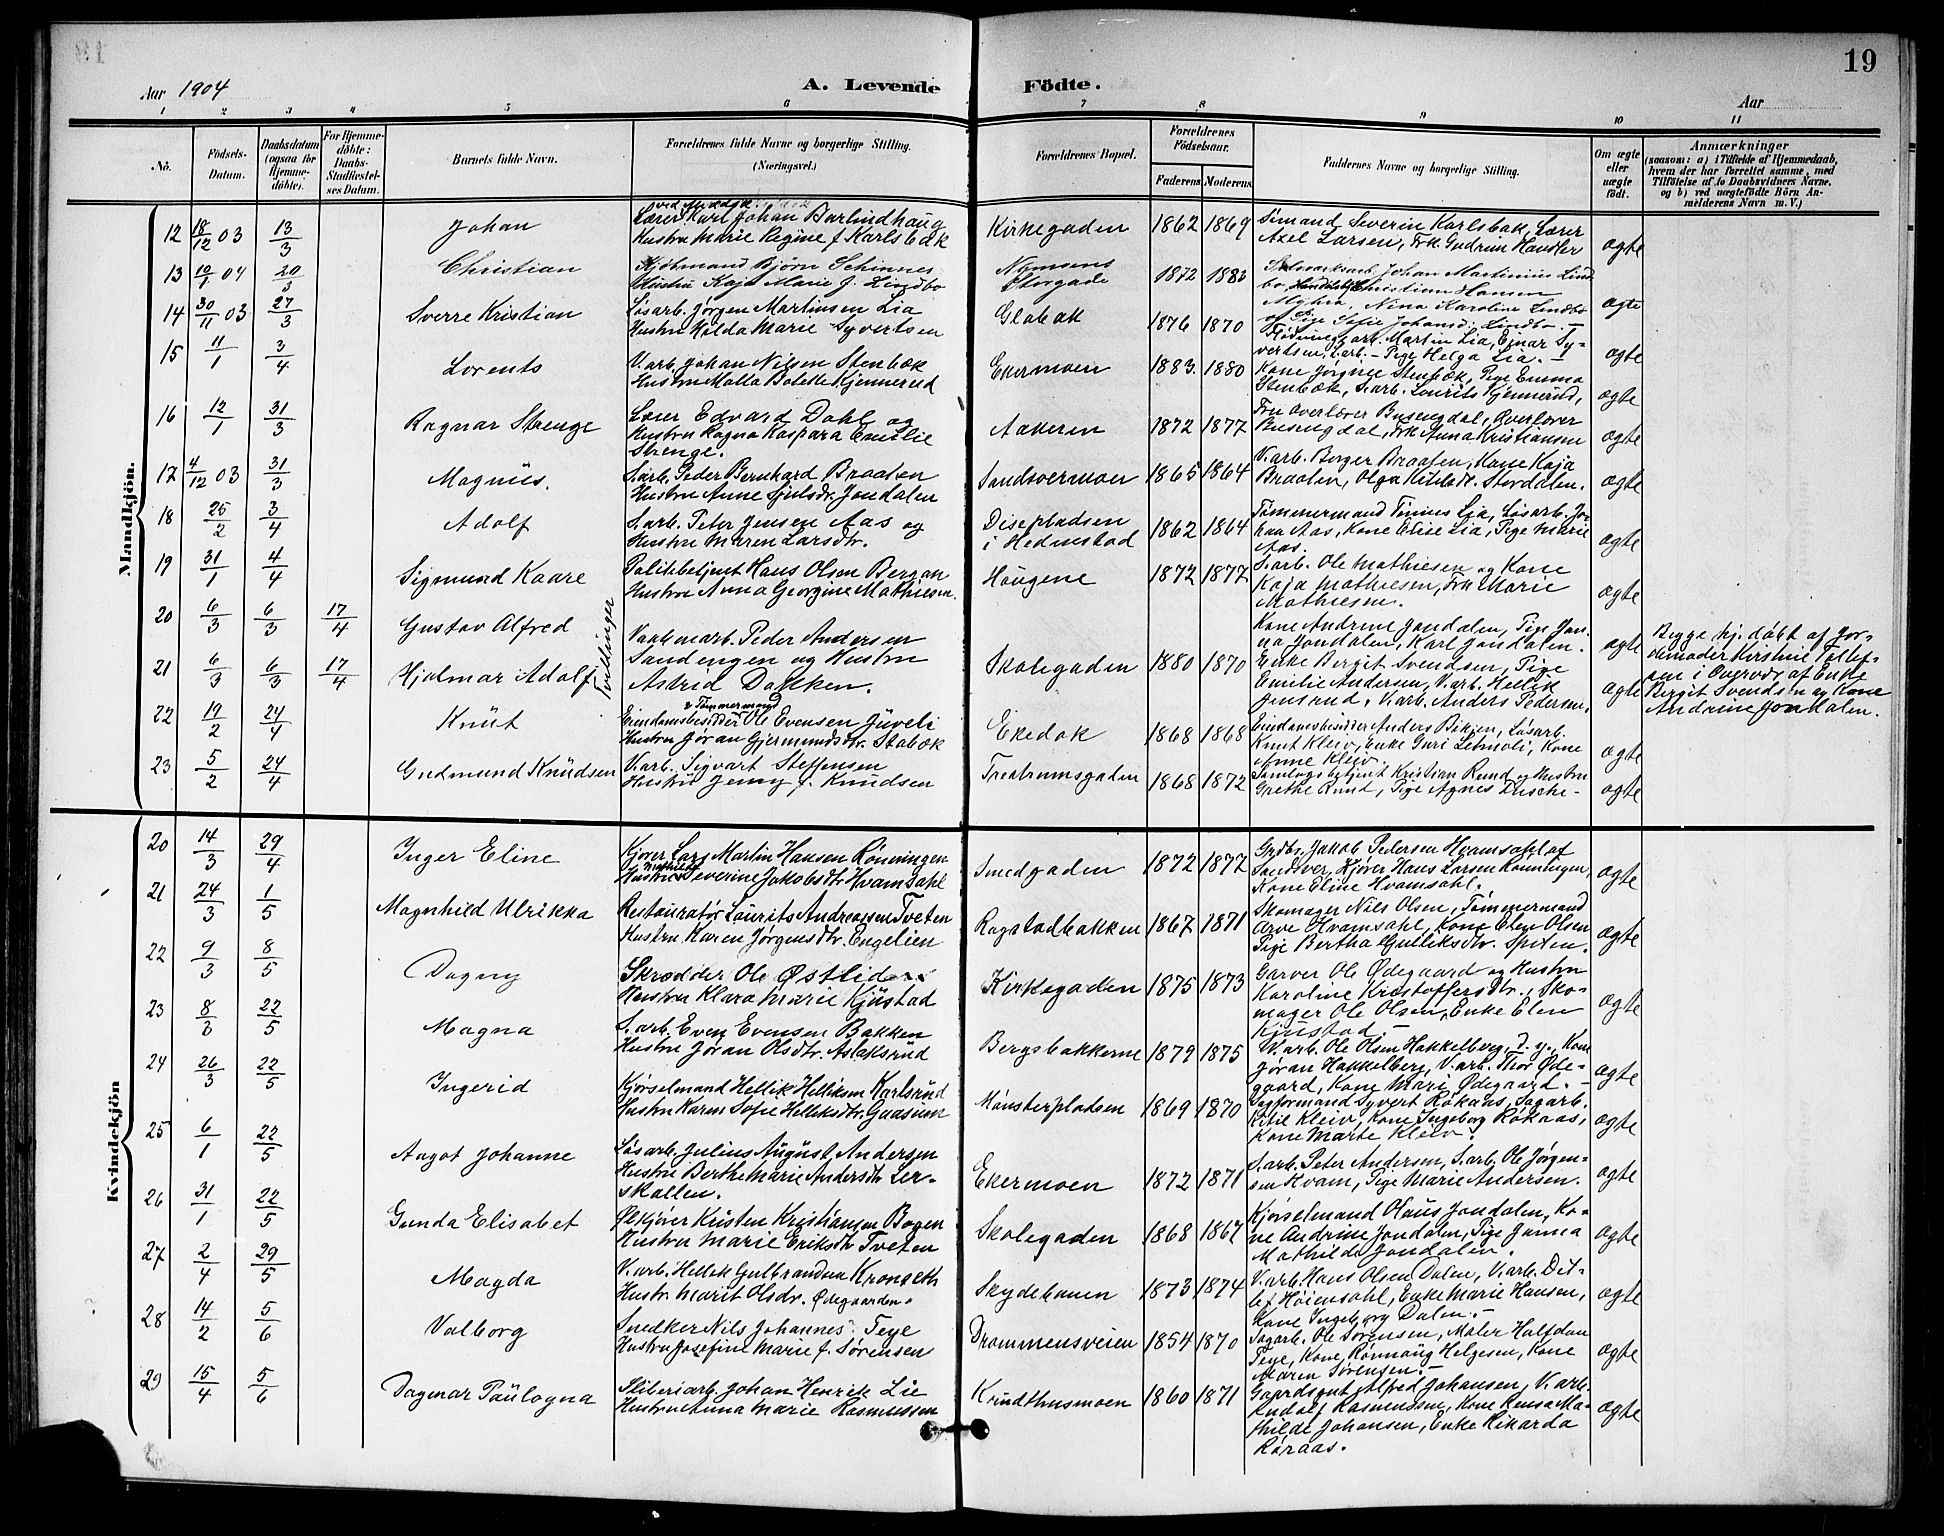 19
Aar 1904
A. Levende Födte.
Aar
1 2 3 4 5 6 7 8 9 10 11
No.
Födsels-Datum.
Daabsdatum (ogsaa for Hjemme-döbte).
For Hjemme-döbte: Daabs-Stadfæstel-ses Datum.
Barnets fulde Navn.
Forældrenes fulde Navne og borgerlige Stilling. (Næringsvei.)
Forældrenes Bopæl.
Forældrenes Födselsaar.
Faderens Moderens
Faddernes Navne og borgerlige Stilling.
Om ægte eller uægte født.
Anmærkninger
(saasom: a) i Tilfælde af Hjemmedaab,
hvem der har forrettet samme, med
Tilföielse af to Daabsvidners Navne.
og b) ved uægtefødte Börn An-
melderens Navn m. V.)
Mandkjön.
12 18/12 03 13/3 Johan
Lærer Karl Johan Barlindhaug
Hustru Marie Regine f. Karlsbak
Kirkegaden 1862 1869
Simand Severin Karlsbak, Lærer
Axel Larsen, Frk Gudrun Hansler
ægte
13 10/1 04 20/3 Christian
Kjöbmand Björn Schinnes
Hustru Kaja Marie f. Lindbo
Storgade 1872 1883
Johan Martinius Lind-
bo, Christian Hansen
Myhra, Nina Karoline Lindbo
og Pige Sofie Johansd. Lindbo. -
ægte
14 30/11 03 27/3 Sverre Kristian
Løsarb. Jörgen Martinsen Lia
Hustru Hilda Marie Syvertsen
Glabak 1876 1870
arb. Martin Lia, Einar Sy-
vertsen, S.arb. - Pige Helga Lia. -
ægte
15 11/1 3/4 Lorents
V.arb. Johan Nilsen Stenbæk
Hustru Malla Bolette Kjennerud
Ekermoen 1883 1880
Kone Jörgine Stenbæk, Pige Emma
Stenbæk, S.arb. Lauritz Kjennerud,
ægte
16 12/1 31/3 Ragnar Stenge
Lærer Edvard Dahl og
Hustru Ragna Kaspara Emilie
Stenge.
Aakeren 1872 1877
Fru Overlærer Busengdal, Overlærer
Busengdal, Frk Anna Kristiansen
ægte
17 4/12 03 31/3 Magnus.
S.arb. Peder Bernhard Braaten
Hustru Anne Sjulsdr. Jondalen
Sandsværmoen 1865 1864
V.arb. Borger Braaten, Kone Kaja
Braaten, Olga Kitilsdr. Stordalen.
ægte
18 25/2 3/4 Adolf
S.arb. Peter Jensen Aas og
Hustru Maren Larsdtr.
Disepladsen
i Hedenstad 1862 1864
Tømmermand Tinius Lia, Løsarb. Jo-
han Aas, Kone Elise Lia, Pige Marie
Aas.
ægte
19 31/1 4/4 Sigmund Kaare
Politibetjent Hans Olsen Bergan
Hustru Anna Georgine Mathiesen.
Haugene 1872 1877
S.arb. Ole Mathiesen og Kone
Kaja Mathiesen, Frk Marie
Mathiesen.
ægte
20 6/3 6/3 17/4 Gustav Alfred
21 6/3 6/3 17/4 Hjalmar Adolf
Tvillinger
Vaabenarb. Peder Andersen
Sandengen og Hustru
Astrid Dokken.
Skolegaden 1880 1870
Kone Andrine Jondalen, Pige Jan-
na Jondalen, Karl Jondalen.
ægte
Enke Bergit Svendsen, Pige
Emilie Andersen, V.arb. Hellik
Jensrud, V.arb. Anders Pedersen,
ægte
Begge hj. døbt af Jor-
demoder Kirstine Tollef-
sen i Overvær af Enke
Birgit Svendsen og Kone
Andrine Jondalen.
22 19/2 24/4 Knut
& Tømmermand
Eiendomsbesidder Ole Evensen Juveli
Hustru Jöran Gjermundsdtr. Stabæk
Ekebak 1868 1868
Eiendomsbesidder Anders Bikjen, Løsarb.
Knut Kleiv, Enke Guri Letmoli, Kone
Anne Kleiv.
ægte
23 5/2 24/4 Gudmund Knudsen
V.arb. Sigvart Steffensen
Hustru Jenny f. Knudsen
Treatrumsgaden 1868 1872
Kristian Rund og Hustru
Grethe Rund, Pige Agnes
ægte
Kvindekjön
20 14/3 29/4 Inger Eline
Kjører Lars Martin Hansen Rönningen
Hustru Severine Jakobsdtr. Hvamsahl
Smedgaden 1872 1877
Grdbr. Jakob Pedersen Hvamsahl af
Sandsver, Kjører Hans Larsen Rönningen,
Kone Eline Hvamsahl.
ægte
21 24/3 1/5 Magnhild Ulrikka
Restauratør Laurits Andreassen Tveten
Hustru Karen Jørgensdtr. Engelien
Rogstadbakken 1867 1871
Skomager Nils Olsen, Tømmermand
Arve Hvamsahl, Kone Elen Olsen
Pige Bertha Gulliksdtr. Spiten.
ægte
22 9/3 8/5 Dagny
Skrædder Ole Østlid
Hustru Klara Marie Kjustad
Kirkegaden 1875 1873
Garver Ole Ødegaard og Hustru
Karoline Kristoffersdtr., Sko-
mager Ole Olsen, Enke Elen
Kjustad. -
ægte
23 8/3 22/5 Magna
S.arb. Even Evensen Bakken
Hustru Jöran Olsdtr. Aslaksrud
Bergsbakkerne 1879 1875
V.arb. Ole Olsen Hakkelberg, d. y., Kone
Jöran Hakkelberg, V.arb. Thor Øde-
gaard, Kone Mari Ødegaard. -
ægte
24 26/3 22/5 Ingerid
Kjørselmand Hellik Helliksen Karlsrud
Hustru Karen Sofie Helliksdtr. Gaasum
Mønsterpladsen 1869 1870
Syvert Røkaas, Sagarb.
Kitil Kleiv, Kone Ingeborg Røkaas,
Kone Marte Kleiv.
ægte
25 6/1 22/5 Aagot Johanne
Løsarb. Julius August Andersen
Hustru Berthe Marie Andersdtr. Ler-
skallen.
Ekermoen 1872 1871
S.arb. Peter Andersen, S.arb. Ole Jørgen-
sen Kvam, Pige Marie Andersen.
ægte
26 31/1 22/5 Gunda Elisabet
Ølkjører Kristen Kristiansen Bogen
Hustru Marie Eriksdtr Tveten
Skolegaden 1868 1867
Kjørselmand Olaus Jondalen, Ko-
ne Andrine Jondalen, Pige Janna
Mathilde Jondalen.
ægte
27 2/4 29/5 Magda
V.arb. Hellik Gulbrandsen Krongeth
Hustr. Marit Olsdr. Ødegaarden.
Skydebanen 1873 1874
V.arb. Hans Olsen Dalen, V.arb. Det-
lef Høiensahl, Enke Marie Hansen,
Kone Ingeborg Dalen. -
ægte
28 14/2 5/6 Valborg
Snedker Nils Johannes Teye
Hustru Josefine Marie f. Sørensen
Drammensveien 1854 1870
Sagarb. Ole Sørensen, Maler Halfdan
Teye, Kone Rønnaug Helgesen, Kone
Maren Sørensen. -
ægte
29 15/4 5/6 Dagmar Paulogna
Sliberiarb. Johan Henrik Lie
Hustru Anna Marie Rasmussen
Krudthusmoen 1860 1871
Gaardsgut Alfred Johansen, V.arb.
Rudolf Rasmussen, Kone Rensa Ma-
thilde Johansen, Enke Rikarda
Røraas.
ægte